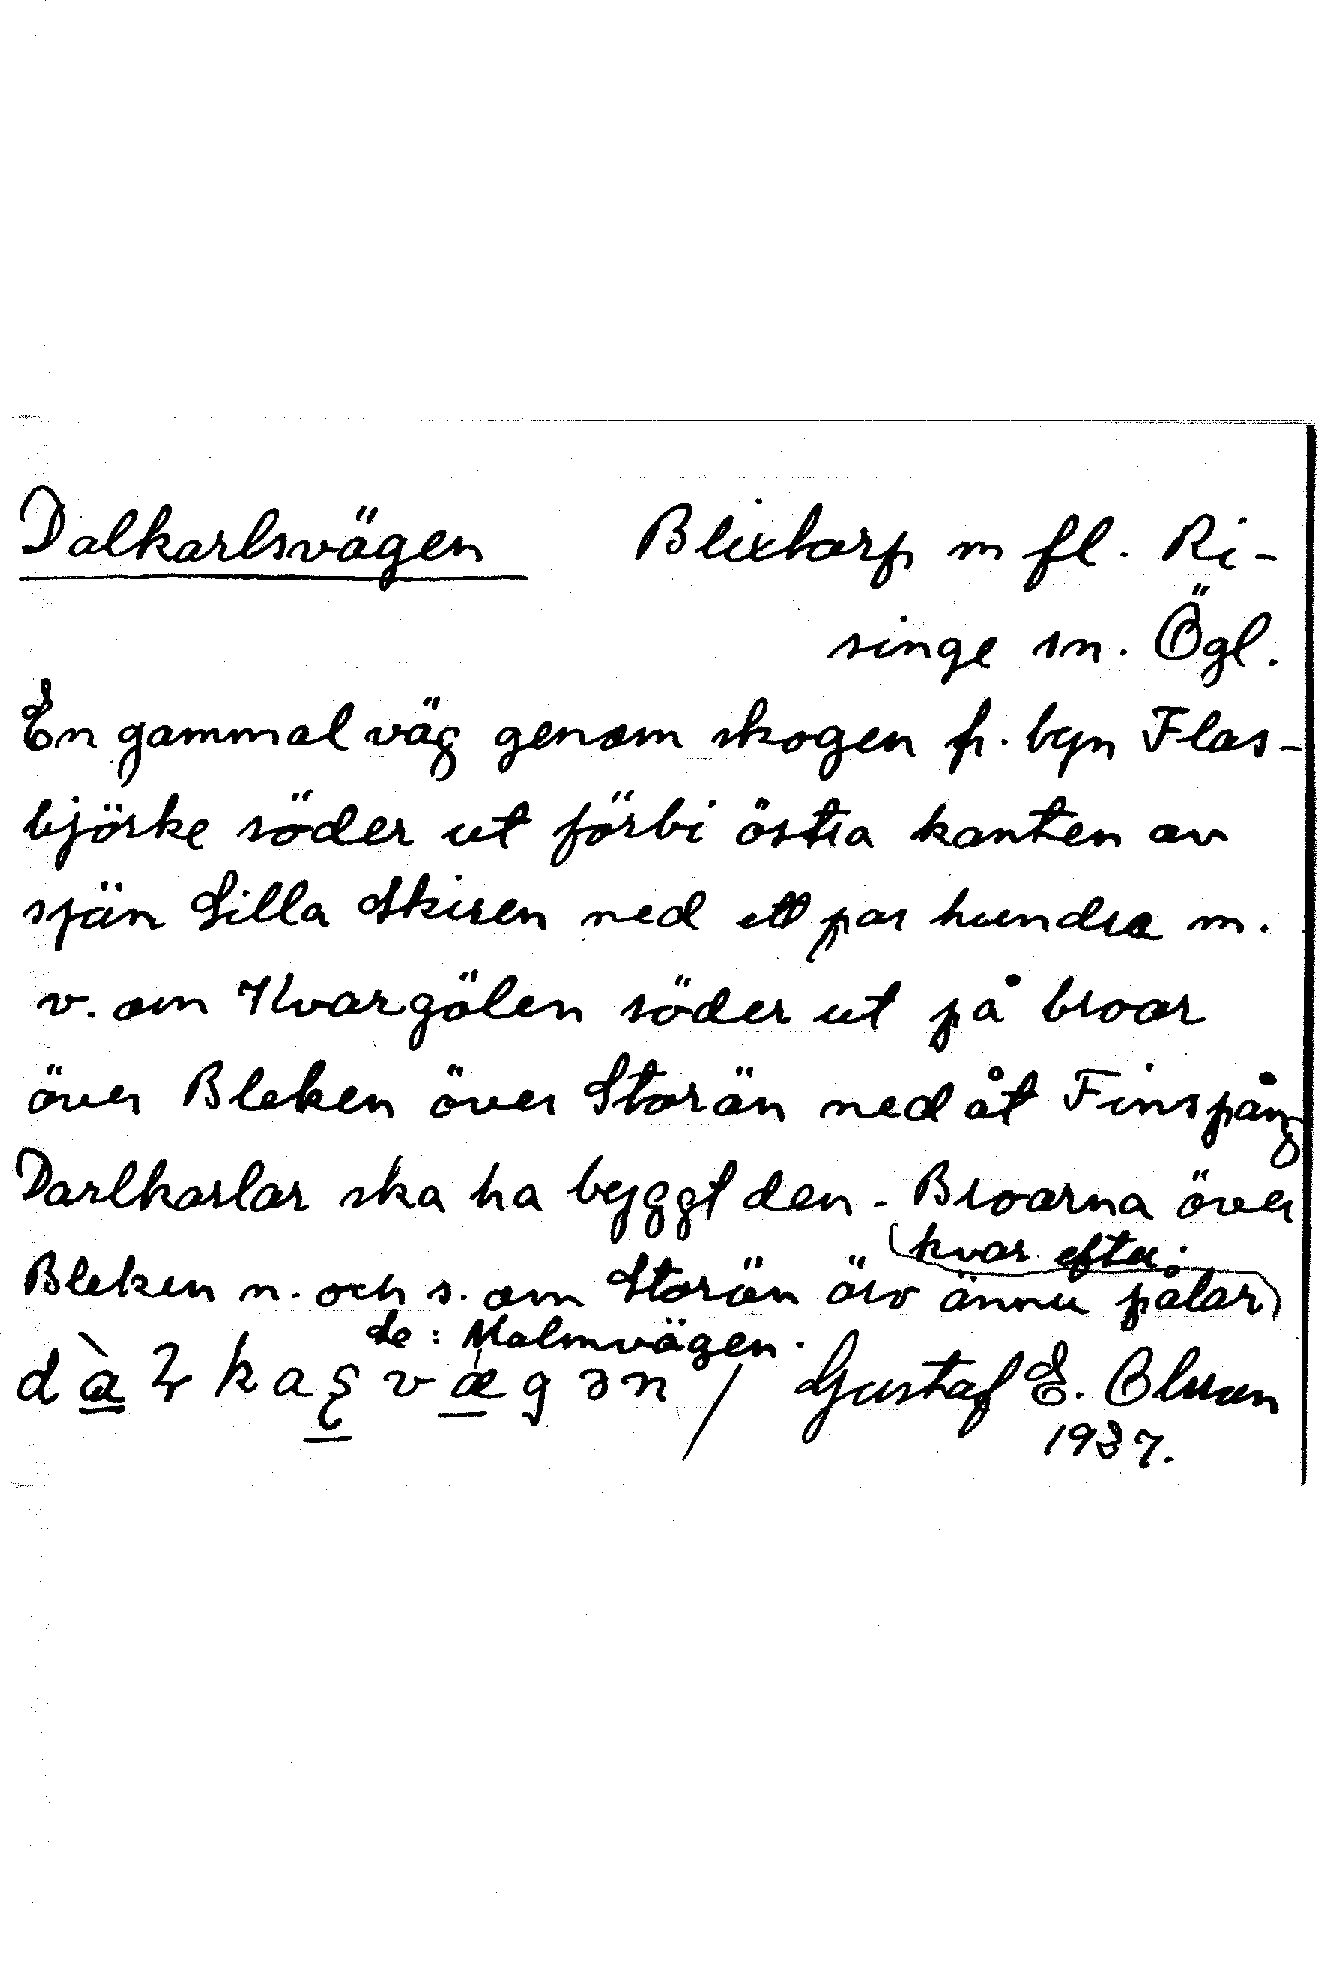 Dalkarlsvägen Blixtorp m fl. Ri-
singe sn. Ögl.
En gammal väg genom skogen fr. byn Flas-
björke söder ut förbi östra kanten av
sjön Lilla Skiren ned ett par hundra m.
v. om Kvargölen söder ut på broar
över Bleken över Storön ned åt Finspång
Darlkarlar ska ha byggt den. Broarna över
kvar efter.
Bleken n. och s. om Storön är ännu pålar
se: Malmvägen.
Gustaf E. Olsson
1937.